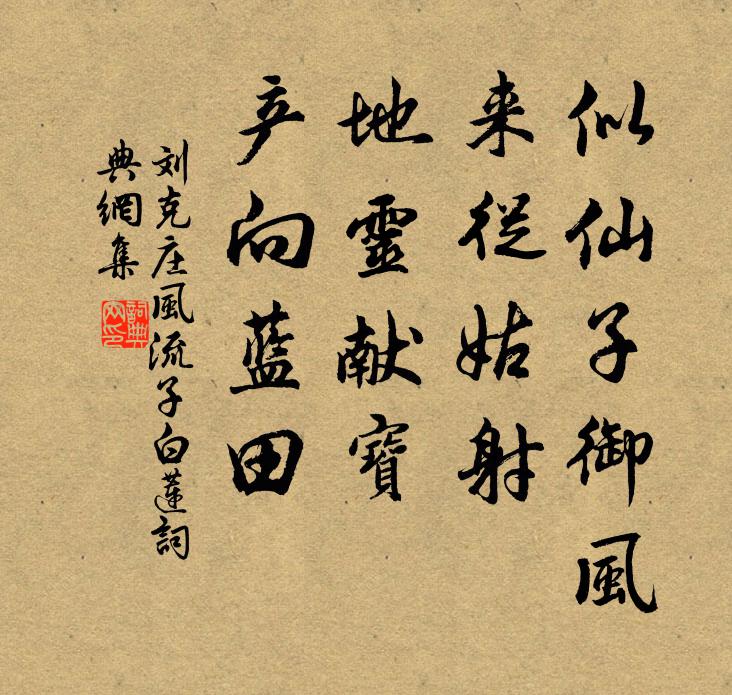 似仙子御風
来從姑射
地靈献寶
产向藍田
刘克庄風流子白蓮詞
典網集
詞典
网印